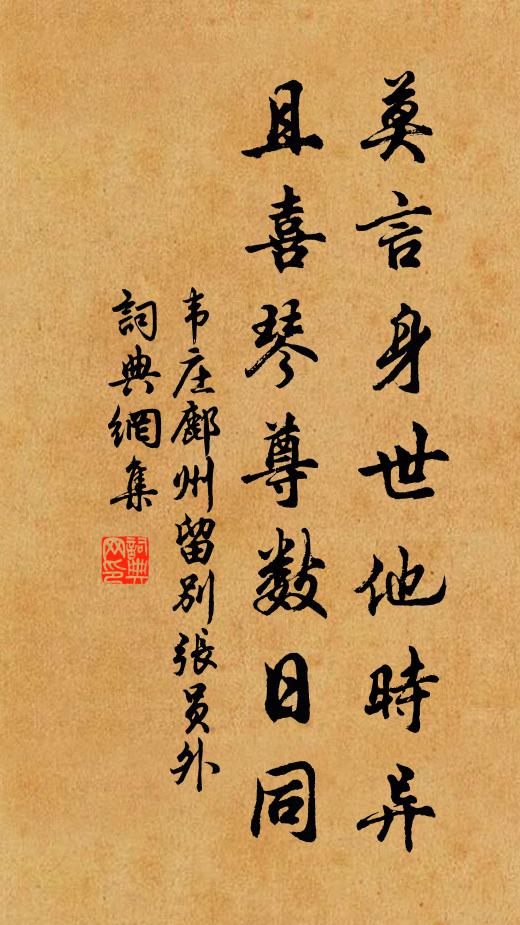 莫言身世他時异
且喜琴尊数日同
韦庄鄜州留别張员外
詞典網集
詞典网印